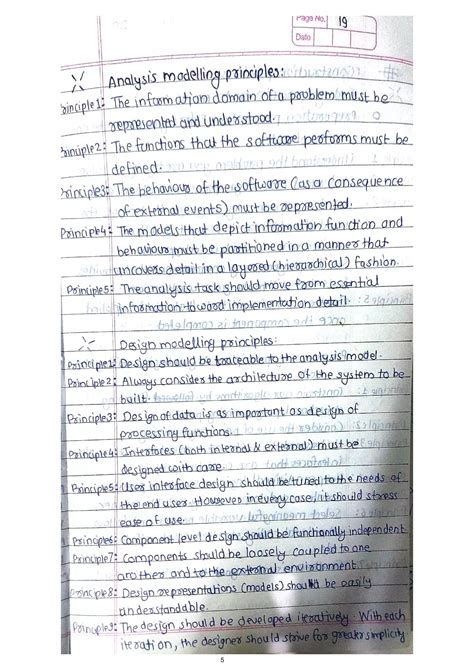 Page No. 19
Date
Analysis modelling principles:
Principle 1: The information domain of a problem must be
represented and understood.
Principle 2: The functions that the software performs must be
defined.
Principle 3: The behaviour of the software (as a consequence
of external events) must be represented.
Principle 4: The models that depict information function and
behaviour must be partitioned in a manner that
uncovers detail in a layered (hierarchical) fashion.
Principle 5: The analysis task should move from essential
information toward implementation detail.
Design modelling principles:
Principle 1: Design should be traceable to the analysis model.
Principle 2: Always consider the architecture of the system to be
built.
Principle 3: Design of data is as important as design of
processing functions.
Principle 4: Interfaces (both internal & external) must be
designed with care.
Principle 5: User interface design should be tuned to the needs of
the end user. However in every case, it should stress
ease of use.
Principle 6: Component level design should be functionally independent
Principle 7: Components should be loosely coupled to one
another and to the external environment.
Principle 8: Design representations (models) should be easily
understandable.
Principle 9: The design should be developed iteratively. With each
iteration, the designer should strive for greater simplicity.
5